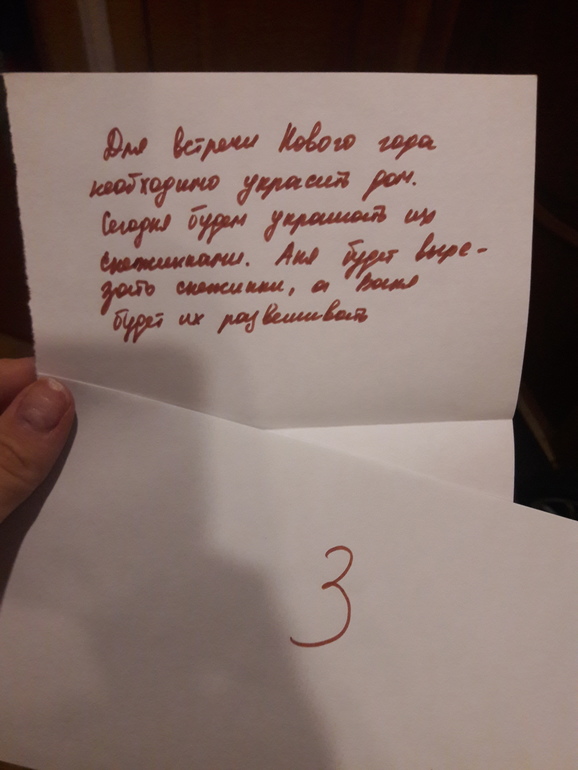 Для встречи Нового года
необходимо украсить дом.
Сегодня будем украшать их
снежинками. Аня будет выре-
зать снежинки, а Ваня
будет их развешивать
3